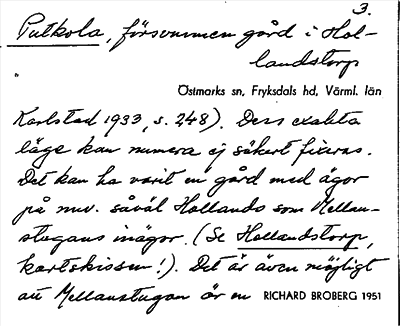 3.
Putkola, försvunnen gård i Hol-
landstorp
Östmarks sn, Fryksdals hd, Värml. län
Karlstad 1933, s. 248). Dess exakta
läge kan numera ej säkert fixeras.
Det kan ha varit en gård med ägor
på nuv. såväl Hollands som Mellan-
stugans inägor. (Se Hollandstorp,
kartskissen!). Det är även möjligt
att Mellanstugan är en RICHARD BROBERG 1951